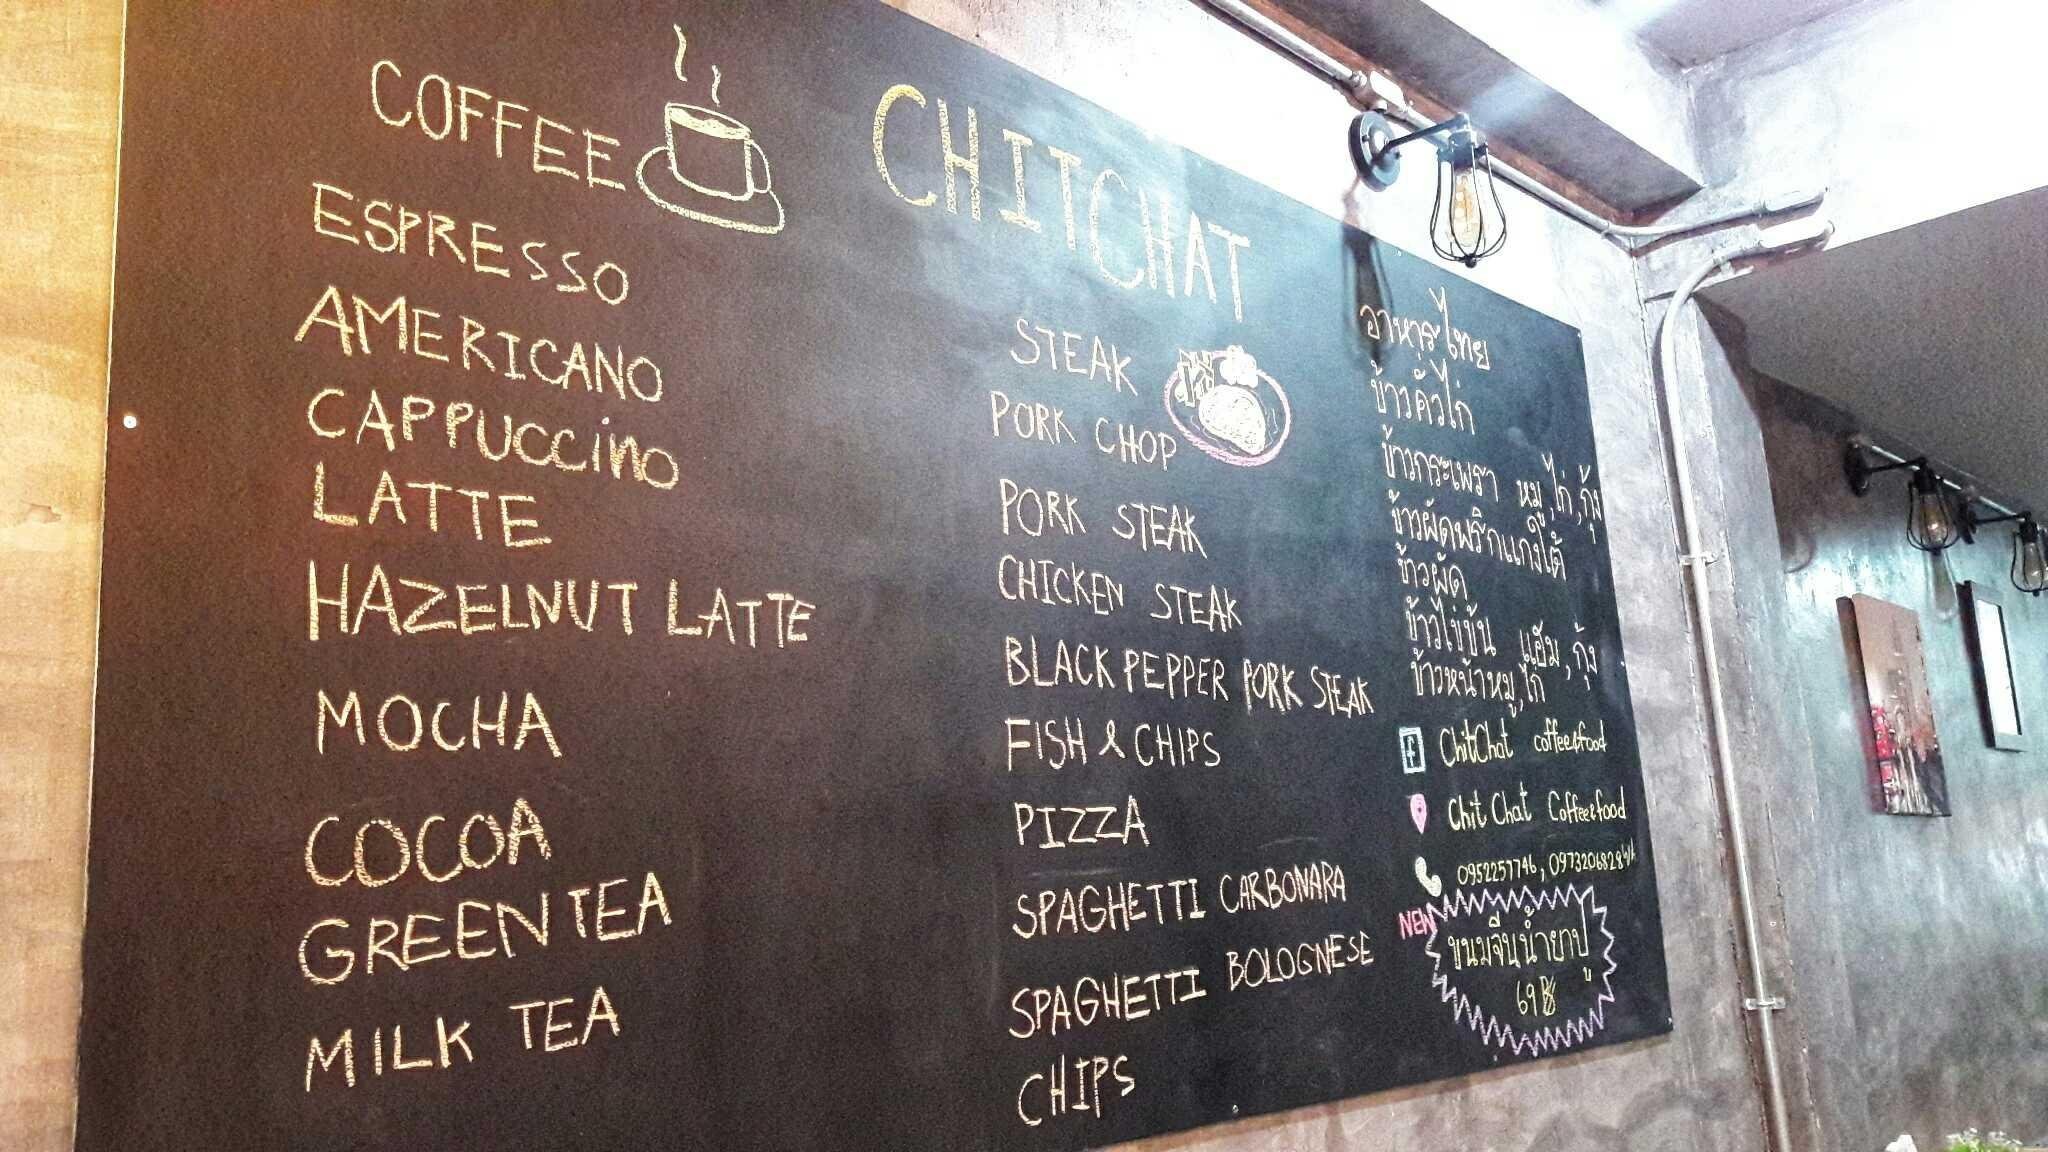 COFFEE
ESPRESSO
AMERICANO
CAPPUCCiNO
LATTE
HAZELNUT LATTE
MOCHA
COCOA
GREEN TEA
MILK TEA
CHITCHAT
STEAK
PORK CHOP
PORK STEAK
CHICKEN STEAK
BLACK PEPPER PORK STEAK
FISH & CHIPS
PIZZA
SPAGHETTI CARBONARA
SPAGHETTI BOLOGNESE
CHIPS
อาหารไทย
ข้าวคั่วไก่
ข้าวกระเพรา หมู,ไก่,กุ้ง
ข้าวผัดพริกแกงใต้
ข้าวผัด
ข้าวไข่ข้น แฮม,กุ้ง
ข้าวหน้าหมู,ไก่
f ChitChat coffee&food
Chit Chat Coffee&food
0952257746, 0973206828
NEW
ขนมจีนน้ำยาปู
69฿